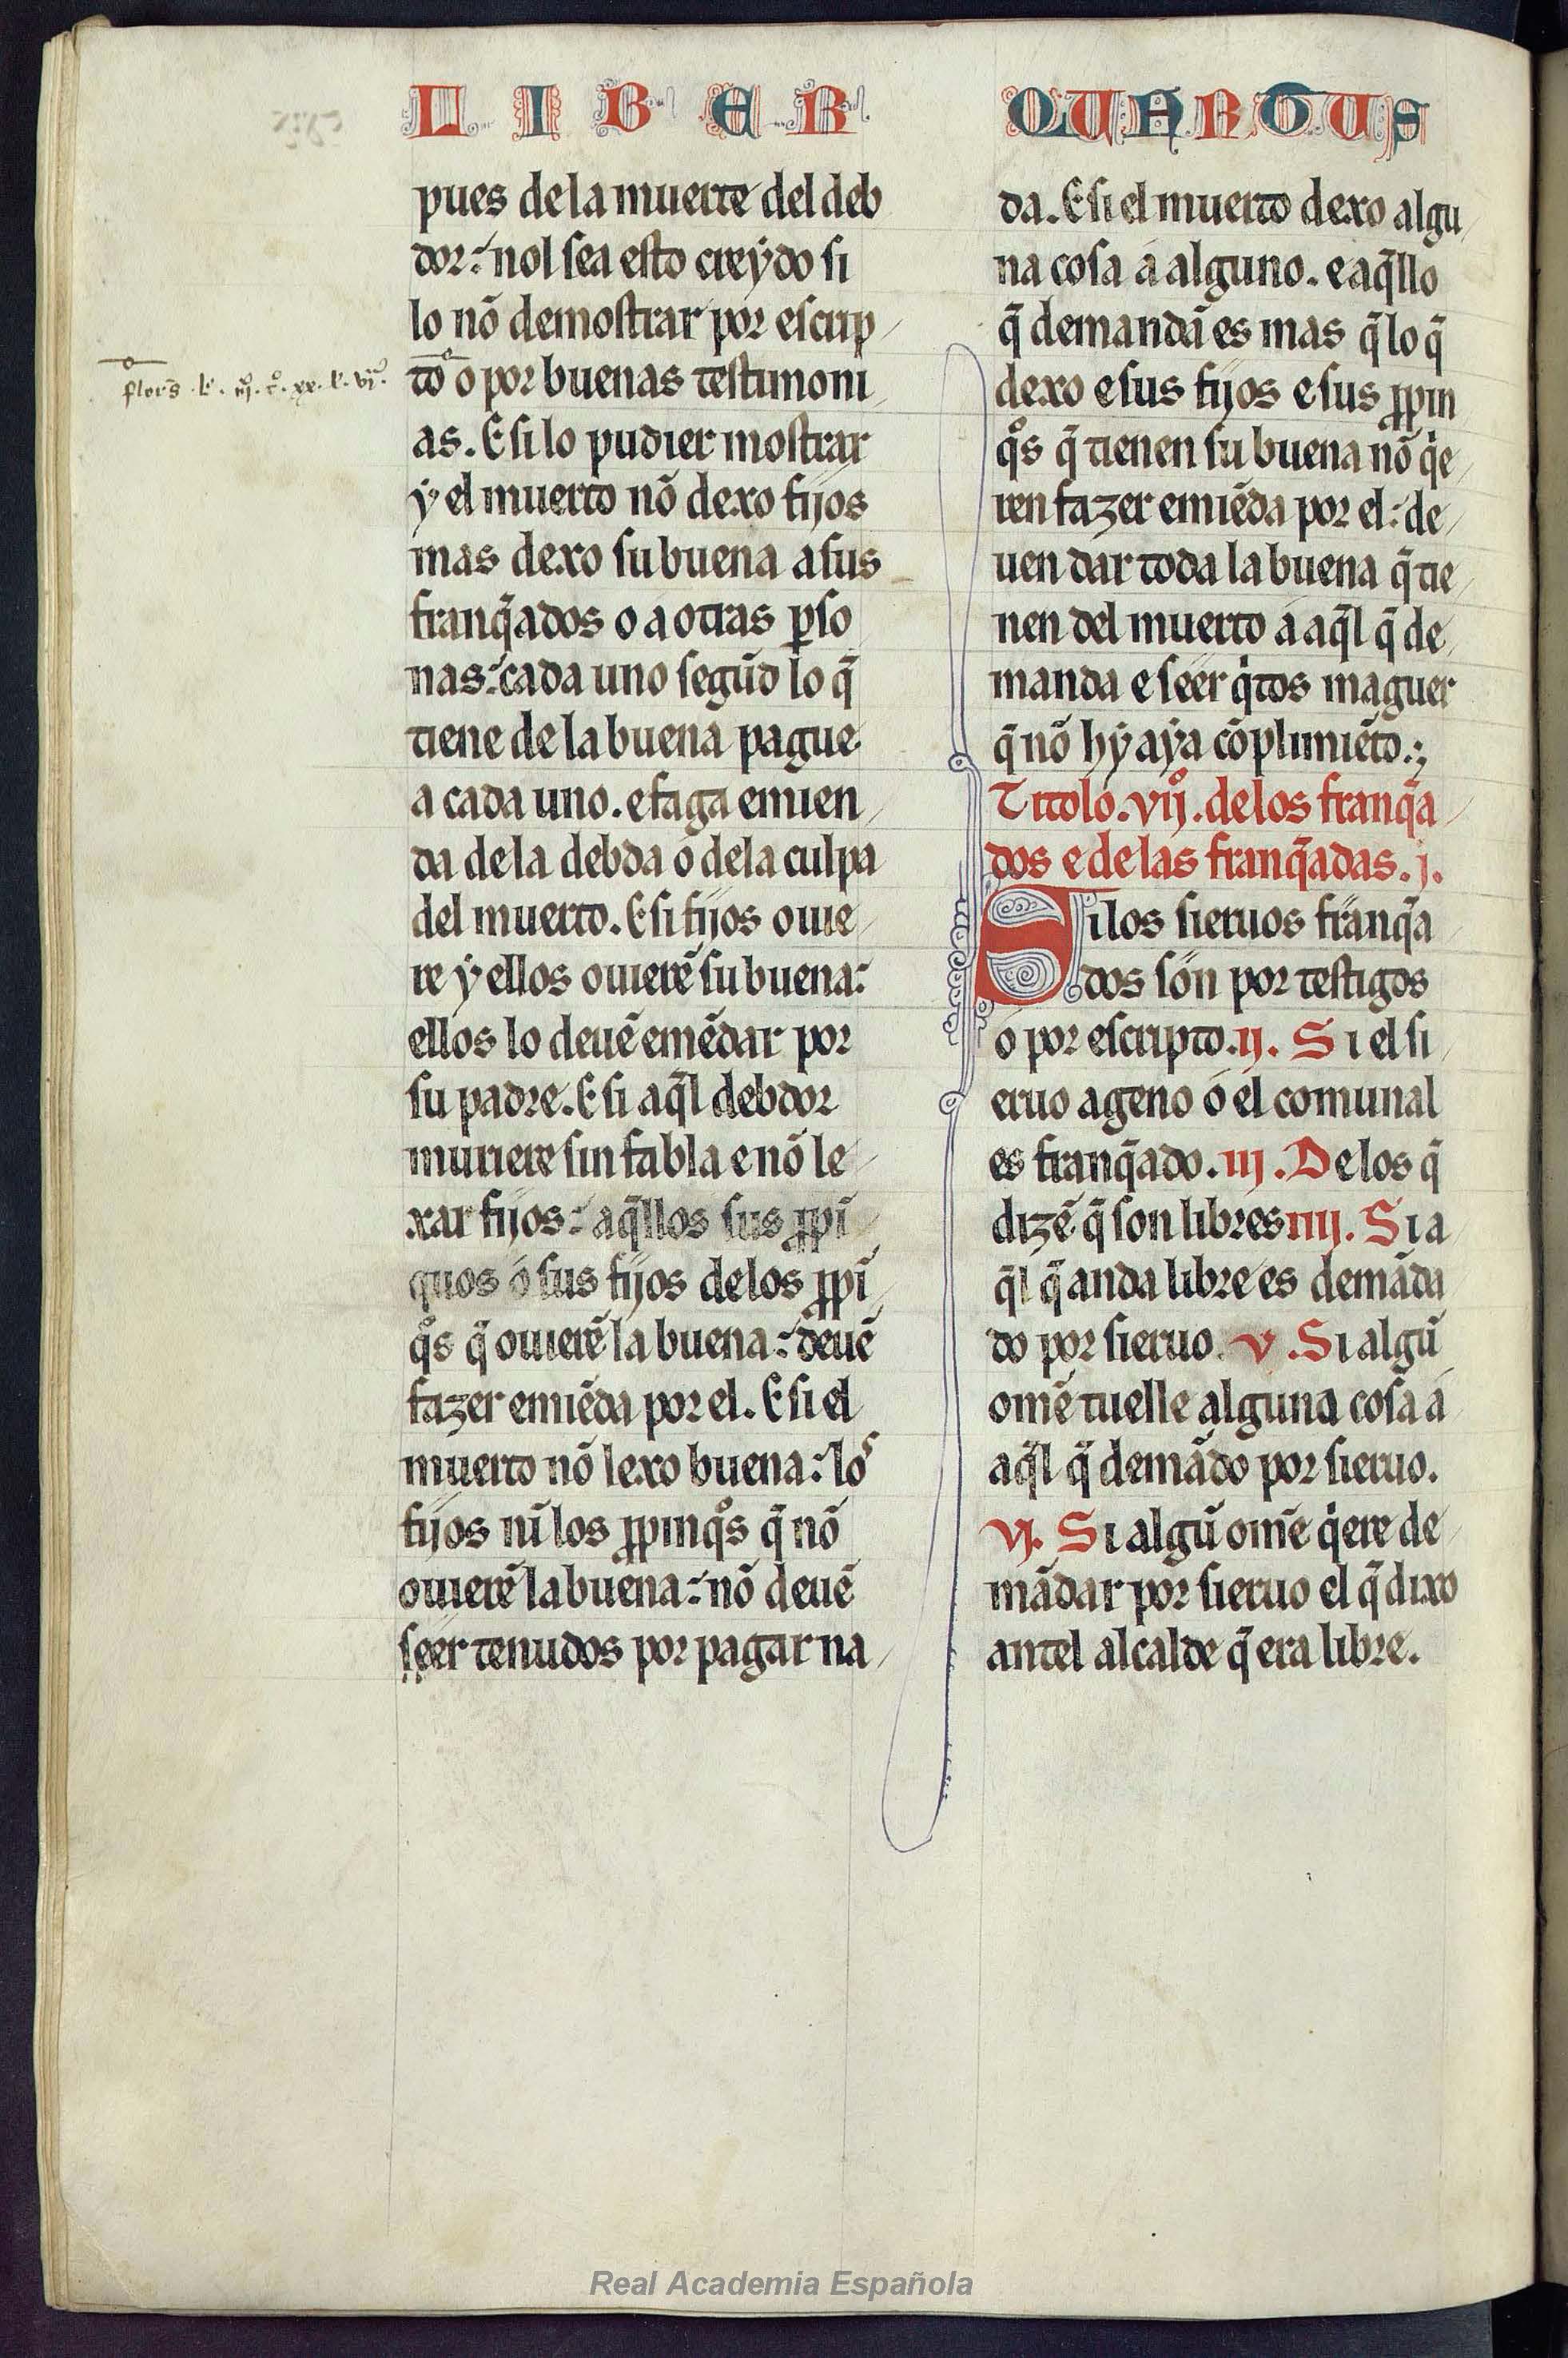 LIBER QUARTUS
pues de la muerte del deb
dor: nol sea esto creẏdo si
lo nõ demostrar por escrip
to o por buenas testimoni
as. E si lo pudier mostrar
ẏ el muerto nõ dexo fijos
mas dexo su buena a sus
franq̃ados o a otras ꝑso
nas: cada uno segũd lo q̃
tiene de la buena pague
a cada uno. e faga emien
da de la debda o de la culpa
del muerto. E si fijos ouie
re ẏ ellos ouierẽ su buena:
ellos lo deuẽ emẽdar por
su padre. E si aq̃l debdor
muriere sin fabla e nõ le
xar fijos: aq̃llos sus ꝓpĩ
quos o sus fijos delos ꝓpĩ
qͦs q̃ ouierẽ la buena: deuẽ
fazer emiẽda por el. E si el
muerto nõ lexo buena: los
fijos nĩ los ꝓpinqͦs q̃ nõ
ouierẽ la buena: nõ deuẽ
seer tenudos por pagar na
da. E si el muerto dexo algu
na cosa a alguno. e aq̃llo
q̃ demandã es mas q̃ lo q̃
dexo e sus fijos e sus ꝓpin
qͦs q̃ tienen su buena nõ qͥe
ren fazer emiẽda por el: de
uen dar toda la buena q̃ tie
nen del muerto a aq̃l q̃ de
manda e seer qͥtos maguer
q̃ nõ hẏ aẏa cõplimiẽto.
Titolo. vijͦ. de los franq̃a
dos e de las franq̃adas. j.
Si los sieruos franq̃a
dos son por testigos
o por escripto. ij. Si el si
eruo ageno o el comunal
es franq̃ado. iij. De los q̃
dizẽ q̃ son libres iiij. Si a
q̃l q̃ anda libre es demãda
do por sieruo. v. Si algũ
omẽ tuelle alguna cosa a
aq̃l q̃ demãdo por sieruo.
vj. Si algũ omẽ qͥere de
mãdar por sieruo el q̃ dixo
antel alcalde q̃ era libre.
Real Academia Española